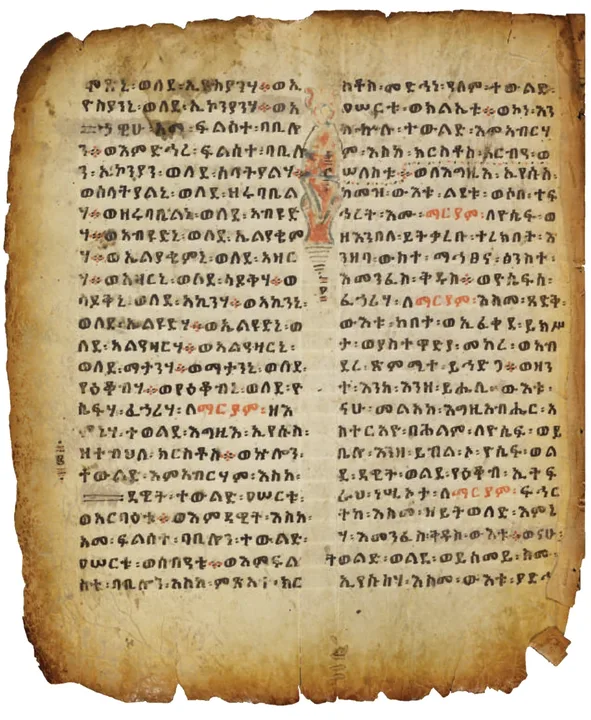 ሞጽኒ፡ወለደ፡ኢዮስያንሃ፨ወኢ
ዮስያንኒ፡ወለደ፡ኢኮንያንሃ፨ወአ
ኀዊሁ፡አመ፡ፍልሰተ፡ባቢሎ
ን፨ወእምድኅረ፡ፍልሰተ፡ባቢሎ
ን፡ኢኮንያን፡ወለደ፡ሰላትያልሃ፨
ወሰላትያልኒ፡ወለደ፡ዘሩባቤል
ሃ፨ወዘሩባቤልኒ፡ወለደ፡አብዩድ
ሃ፨ወአብዩድኒ፡ወለደ፡ኤልያቄም
ሃ፨ወኤልያቄምኒ፡ወለደ፡አዛር
ሃ፨ወአዛርኒ፡ወለደ፡ሳዶቅሃ፨ወ
ሳዶቅኒ፡ወለደ፡አኪንሃ፨ወአኪንኒ፡
ወለደ፡ኤልዩድሃ፨ወኤልዩድኒ፡ወ
ለደ፡አልዓዛርሃ፨ወአልዓዛርኒ፡
ወለደ፡ማታንሃ፨ወማታንኒ፡ወለደ፡
ያዕቆብሃ፨ወያዕቆብኒ፡ወለደ፡ዮ
ሴፍሃ፡ፈኃሪሃ፡ለማርያም፡ዘእ
ምኔሃ፡ተወልደ፡እግዚእ፡ኢየሱስ፡
ዘተብህለ፡ክርስቶስ፨ወኵሎን፡
ትውልድ፡እምአብርሃም፡እስከ፡
ዳዊት፡ትውልድ፡ዐሠርቱ፡
ወአርባዕቱ፨ወእምዳዊት፡እስከ፡
አመ፡ፍልሰተ፡ባቢሎን፡ትውልድ፡
ዐሠርቱ፡ወሰብዓቱ፨ወእምፍል
ሰተ፡ባቢሎን፡እስከ፡ምጽአተ፡ክር
ስቶስ፡መድኃኔ፡ዓለም፡ትውልድ፡
ዐሠርቱ፡ወክልኤቱ፨ወኮነ፡እን
ከ፡ኵሉ፡ትውልድ፡እምአብርሃ
ም፡እስከ፡ክርስቶስ፡አርብዓ፡ወ
ሠለስቱ፨ወለእግዚእ፡ኢየሱስ፡
ከመዝ፡ውእቱ፡ልደቱ፡ወሶበ፡ተፍ
ኅረት፡እሙ፡ማርያም፡ለዮሴፍ፡ወ
ዘእንበለ፡ይትቃረቡ፡ተረክበት፡እ
ንዘባ፡ውስተ፡ማኅፀና፡ፅንስት፡
እመንፈስ፡ቅዱስ፨ወዮሴፍሰ፡
ፈኃሪሃ፡ለማርያም፡እስመ፡ጻድቅ፡
ውእቱ፡ከበተ፡ወኢፈቀደ፡ይክሥ
ታ፡ወያስተዋድያ፡መከረ፡ወአብ
ደረ፡ጽሚማተ፡ይኅድጋ፨ወዘን
ተ፡እንከ፡እንዘ፡ይሔሊ፡ውእቱ፡
ናሁ፡መልአከ፡እግዚአብሔር፡አ
ስተርአዮ፡በሕልም፡ለዮሴፍ፡ወይ
ቤሎ፡እንዘ፡ይብል፡ኦ፡ዮሴፍ፡ወል
ደ፡ዳዊት፡ወልደ፡ያዕቆብ፡ኢትፍ
ራህ፡ነሢኦታ፡ለማርያም፡ፍኅር
ትከ፡እስመ፡ዘይትወለድ፡እምኔ
ሃ፡እመንፈስ፡ቅዱስ፡ውእቱ፨ወናሁ፡
ትወልድ፡ወልደ፡ወይሰመይ፡ስሙ፡
ኢየሱስሃ፡እስመ፡ውእቱ፡ያድኅ